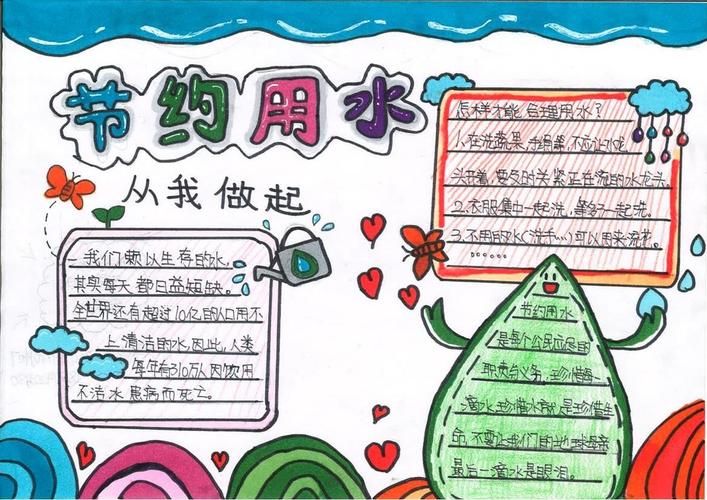 节约用水
从我做起
我们赖以生存的水,
其实每天都日益短缺。
全世界还有超过10亿的人口用不
上清洁的水,因此,人类
每年有310万人因饮用
不洁水患病而死亡。
怎样才能合理用水?
1.在洗蔬果、手绢等,不应让水龙
头开着,要及时关紧正在流的水龙头。
2.衣服集中一起洗,等多了一起洗。
3.不用的水(洗手…)可以用来浇花。
……
节约用水
是每个公民应尽的
职责与义务,珍惜每一
滴水,珍惜水资源,是珍惜生
命,不要让我们的地球母亲
最后一滴水是眼泪。